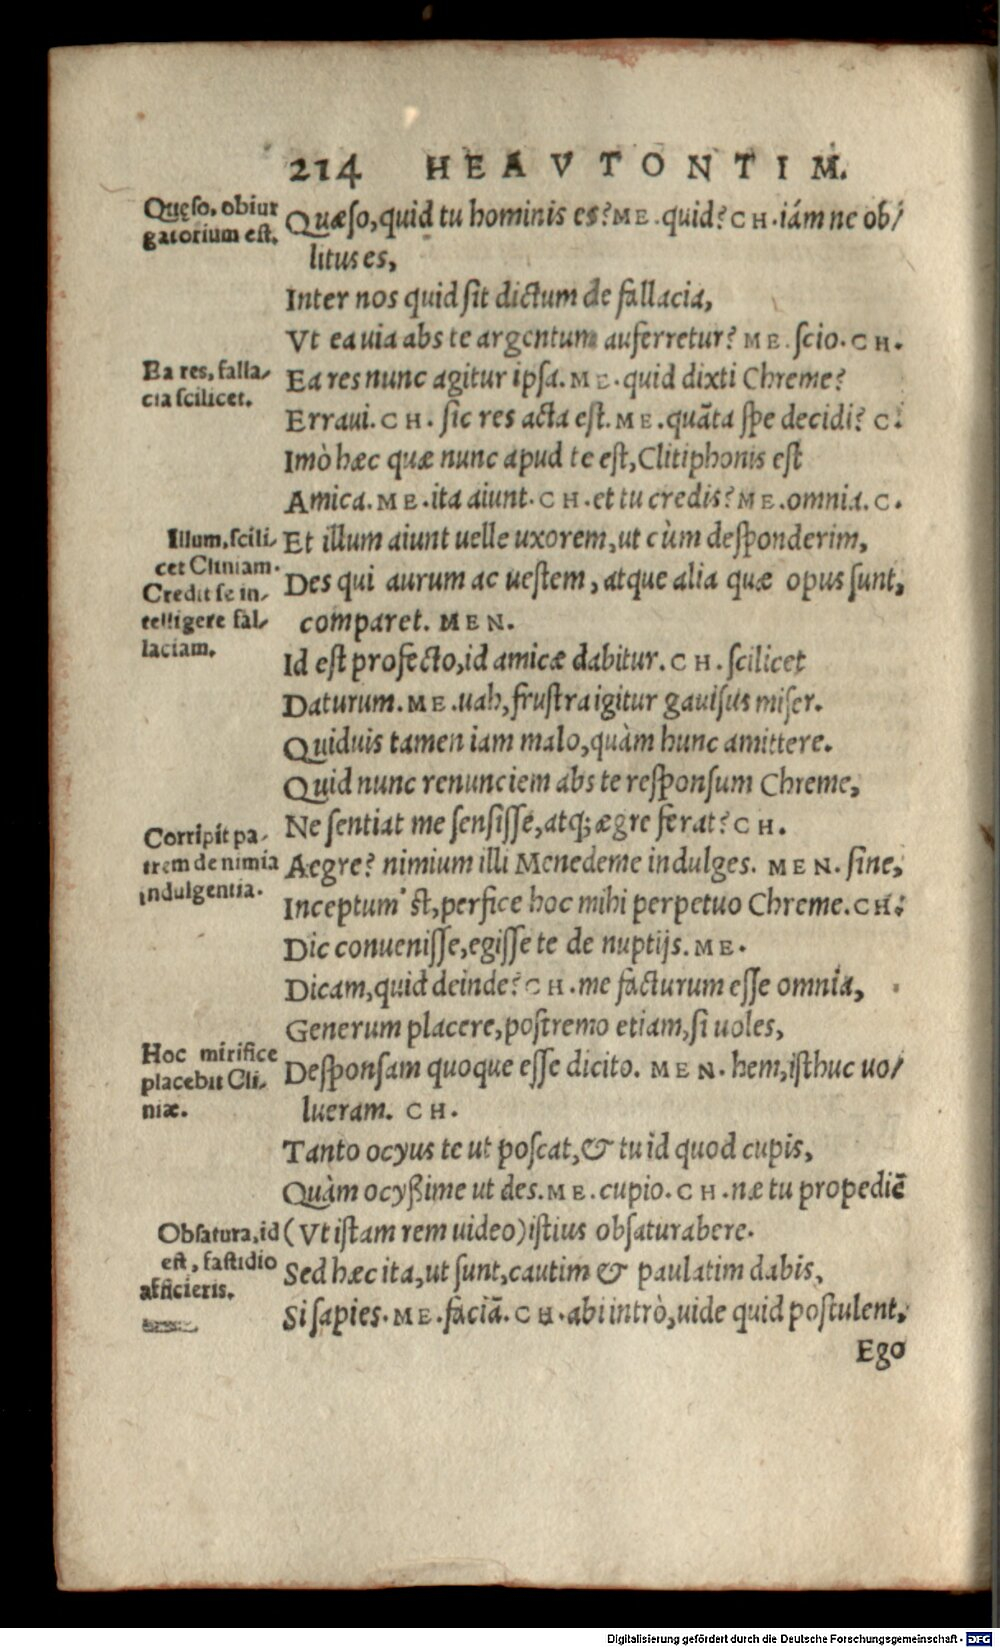 214 HEAVTONTIM.
Quęso, obiur
gatorium est.
Quæso, quid tu hominis es? ME. quid? CH. iám ne ob/
litus es,
Inter nos quid sit dictum de fallacia,
Vt ea uia abs te argentum auferretur? ME. scio. CH.
Ea res, falla/
cia scilicet.
Ea res nunc agitur ipsa. ME. quid dixti Chreme?
Erraui. CH. sic res acta est. ME. quãta spe decidi? C.
Imò hæc quæ nunc apud te est, Clitiphonis est
Amica. ME. ita aiunt. CH. et tu credis? ME. omnia. C.
Illum, scili/
cet Cliniam.
Credit se in/
telligere fal/
laciam.
Et illum aiunt uelle uxorem, ut cùm desponderim,
Des qui aurum ac uestem, atque alia quæ opus sunt,
comparet. MEN.
Id est profecto, id amicæ dabitur. CH. scilicet
Daturum. ME. uah, frustra igitur gauisus miser.
Quiduis tamen iam malo, quàm hunc amittere.
Quid nunc renunciem abs te responsum Chreme,
Ne sentiat me sensisse, atq; ægre ferat? CH.
Corripit pa/
trem de nimia
indulgentia.
Aegre? nimium illi Menedeme indulges. MEN. sine,
Inceptum 'st, perfice hoc mihi perpetuo Chreme. CH.
Dic conuenisse, egisse te de nuptijs. ME.
Dicam, quid deinde? CH. me facturum esse omnia,
Generum placere, postremo etiam, si uoles,
Hoc mirifice
placebit Cli/
niæ.
Desponsam quoque esse dicito. MEN. hem, isthuc uo/
lueram. CH.
Tanto ocyus te ut poscat, & tu id quod cupis,
Quàm ocyßime ut des. ME. cupio. CH. næ tu propediẽ
Obsatura, id
est, fastidio
afficieris.
(Vt istam rem uideo) istius obsaturabere.
Sed hæc ita, ut sunt, cautim & paulatim dabis,
Si sapies. ME. faciã. CH. abi intrò, uide quid postulent,
Ego
Digitalisierung gefördert durch die Deutsche Forschungsgemeinschaft - DFG